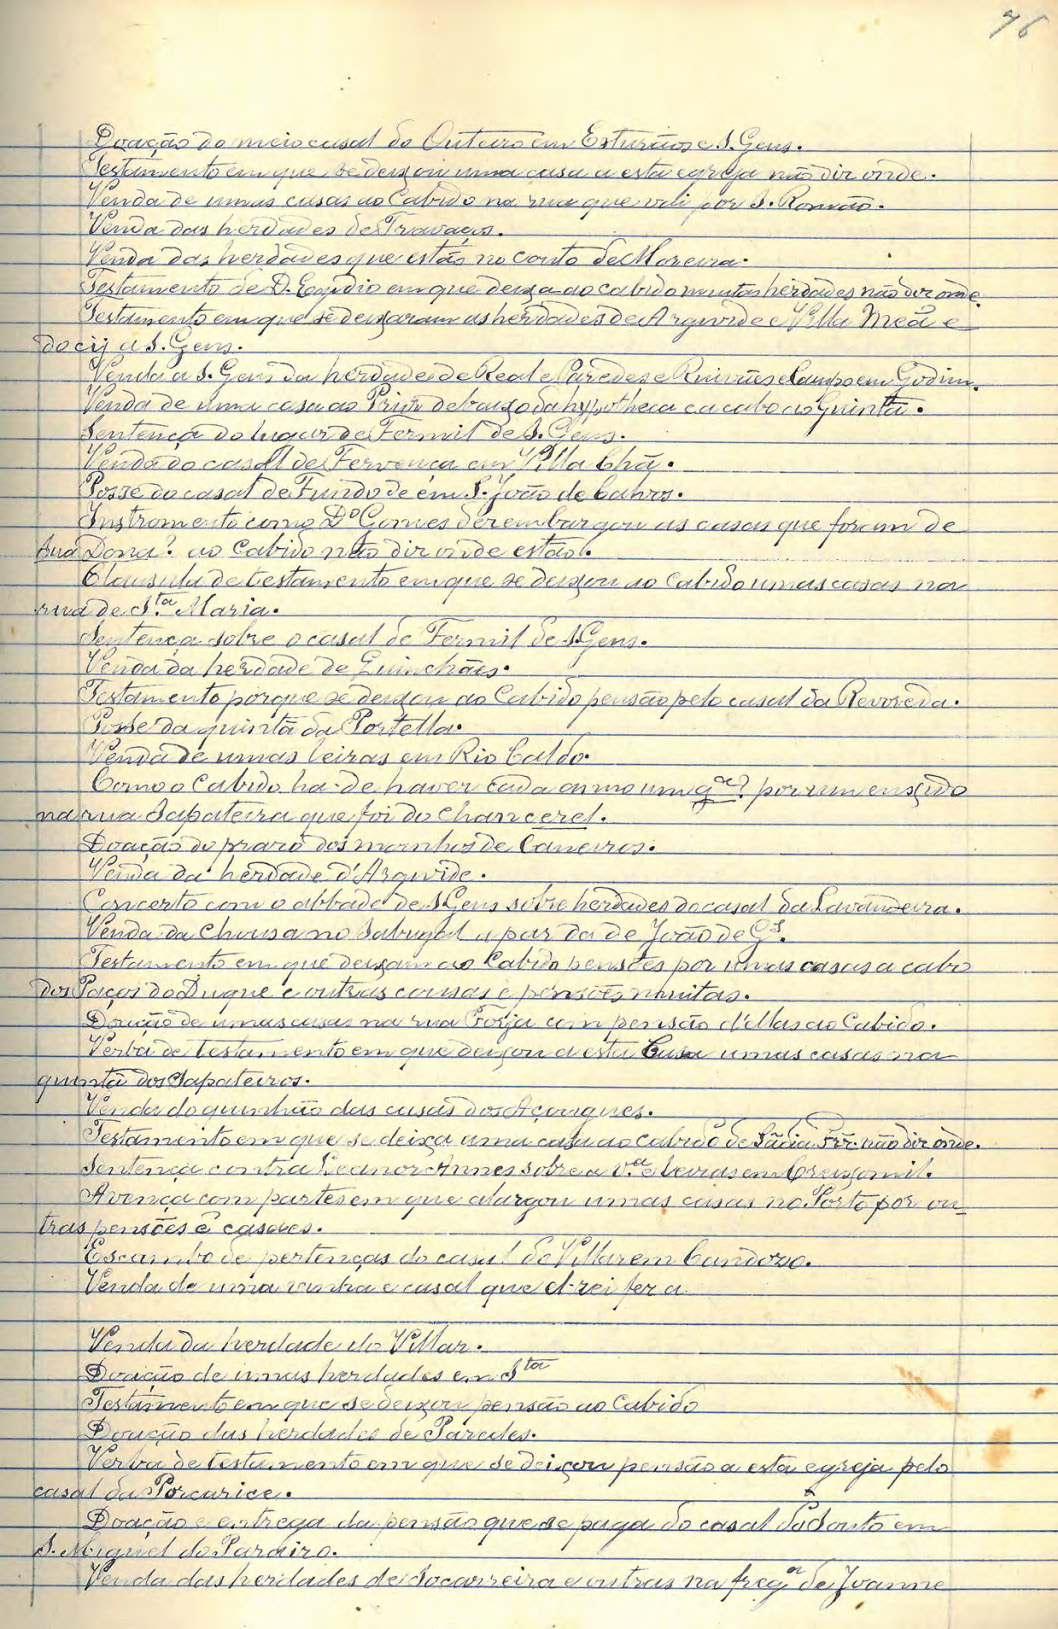 76
Doação do meio casal do Outeiro em Esturãos e S. Gens.
Testamento em que se deixou uma casa a esta egreja não diz onde.
Venda de umas casas ao Cabido na rua que vai por S. Romão.
Venda das herdades de Travaços.
Venda das herdades que estão no couto de Moreira.
Testamento de D. Egidio em que deixa ao cabido muitas herdades não diz onde.
Testamento em que se deixaram as herdades de Arguide e Villa Meã e
do cij a S. Gens.
Venda a S. Gens da herdade de Real e Paredes e Ruivães e Campo em Godim.
Venda de uma casa ao Prior debaixo da hypotheca e a cabo a Quintã.
Sentença do lugar de Fermil de S. Gens.
Venda do casal de Fervença em Villa Chã.
Posse do casal de Fundo de em S. João de Calvos.
Instromento como D.º Gomes desembargou as casas que foram de
sua Dona? ao Cabido não diz onde estão.
Clausula de testamento em que se deixou ao Cabido umas casas na
rua de S.ta Maria.
Sentença sobre o casal de Fermil de S. Gens.
Venda da herdade de Guinchães.
Testamento porque se deixou ao Cabido pensão pelo casal da Revoreda.
Posse da quintã da Portella.
Venda de umas leiras em Rio Caldo.
Como o Cabido ha de haver cada anno um q.ra? por um enxido
na rua Sapateira que foi do Chancerel.
Doação do prazo dos moinhos de Caneiros.
Venda da herdade d'Arguide.
Concerto com o abbade de S. Gens sobre herdades do casal da Lavandeira.
Venda da Chousa no Sabugal a par da de João de G.s.
Testamento em que deixam ao Cabido pensões por umas casas a cabo
dos Paços do Duque e outras cousas e pensões muitas.
Doação de umas casas na rua Forja com pensão d'ellas ao Cabido.
Verba de testamento em que deixou a esta Casa umas casas na
quintã dos Sapateiros.
Venda do quinhão das casas dos Açougues.
Testamento em que se deixa uma casa ao cabido de Sãcia Frz. não diz onde.
Sentença contra Leanor Annes sobre a v.a e leiras em Creixomil.
Avença com partes em que alargou umas casas no Porto por ou-
tras pensões e casaes.
Escambo de pertenças do casal do Villar em Candoso.
Venda de uma vinha e casal que el-rei fez a
Venda da herdade do Villar.
Doação de umas herdades em S.ta
Testamento em que se deixou pensão ao Cabido
Doação das herdades de Paredes.
Verba de testamento em que se deixou pensão a esta egreja pelo
casal da Porcarice.
Doação e entrega da pensão que se paga do casal do Souto em
S. Miguel do Paraiso.
Venda das herdades de Socarreira e outras na freg.a de Joanne